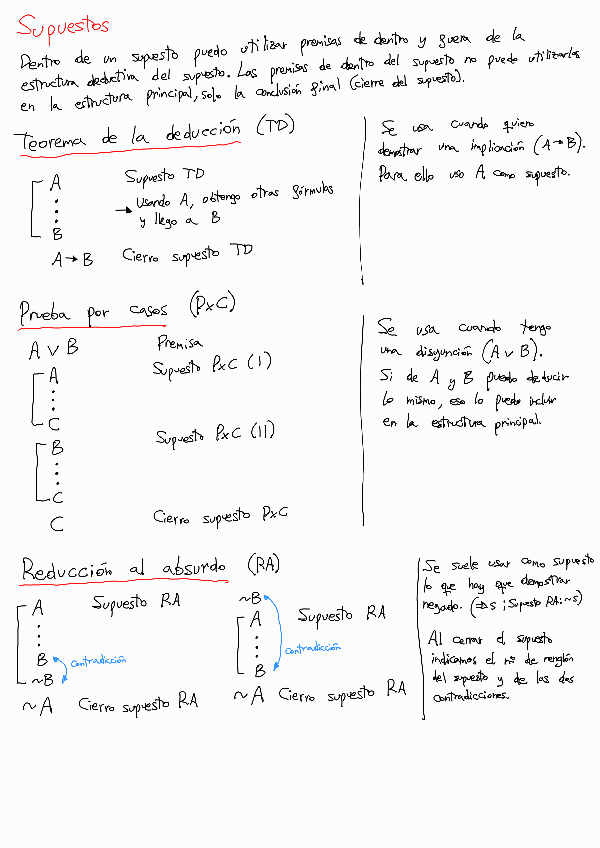 Supuestos
Dentro de un supuesto puedo utilizar premisas de dentro y fuera de la
estructura deductiva del supuesto. Las premisas de dentro del supuesto no puedo utilizarlas
en la estructura principal, solo la conclusión final (cierre del supuesto).
Teorema de la deducción (TD)
A Supuesto TD
→ Usando A, obtengo otras fórmulas
y llego a B
B
A → B Cierro supuesto TD
Se usa cuando quiero
demostrar una implicación (A → B).
Para ello uso A como supuesto.
Prueba por casos (PxC)
A v B Premisa
A Supuesto PxC (I)
C
B Supuesto PxC (II)
C
C Cierro supuesto PxC
Se usa cuando tengo
una disyunción (A v B).
Si de A y B puedo deducir
lo mismo, eso lo puedo incluir
en la estructura principal.
Reducción al absurdo (RA)
A Supuesto RA
B contradicción
~B
~A Cierro supuesto RA
~B
A Supuesto RA
contradicción
B
~A Cierro supuesto RA
Se suele usar como supuesto
lo que hay que demostrar
negado. (⇒ s ; Supuesto RA: ~s)
Al cerrar el supuesto
indicamos el nº de renglón
del supuesto y de las dos
contradicciones.